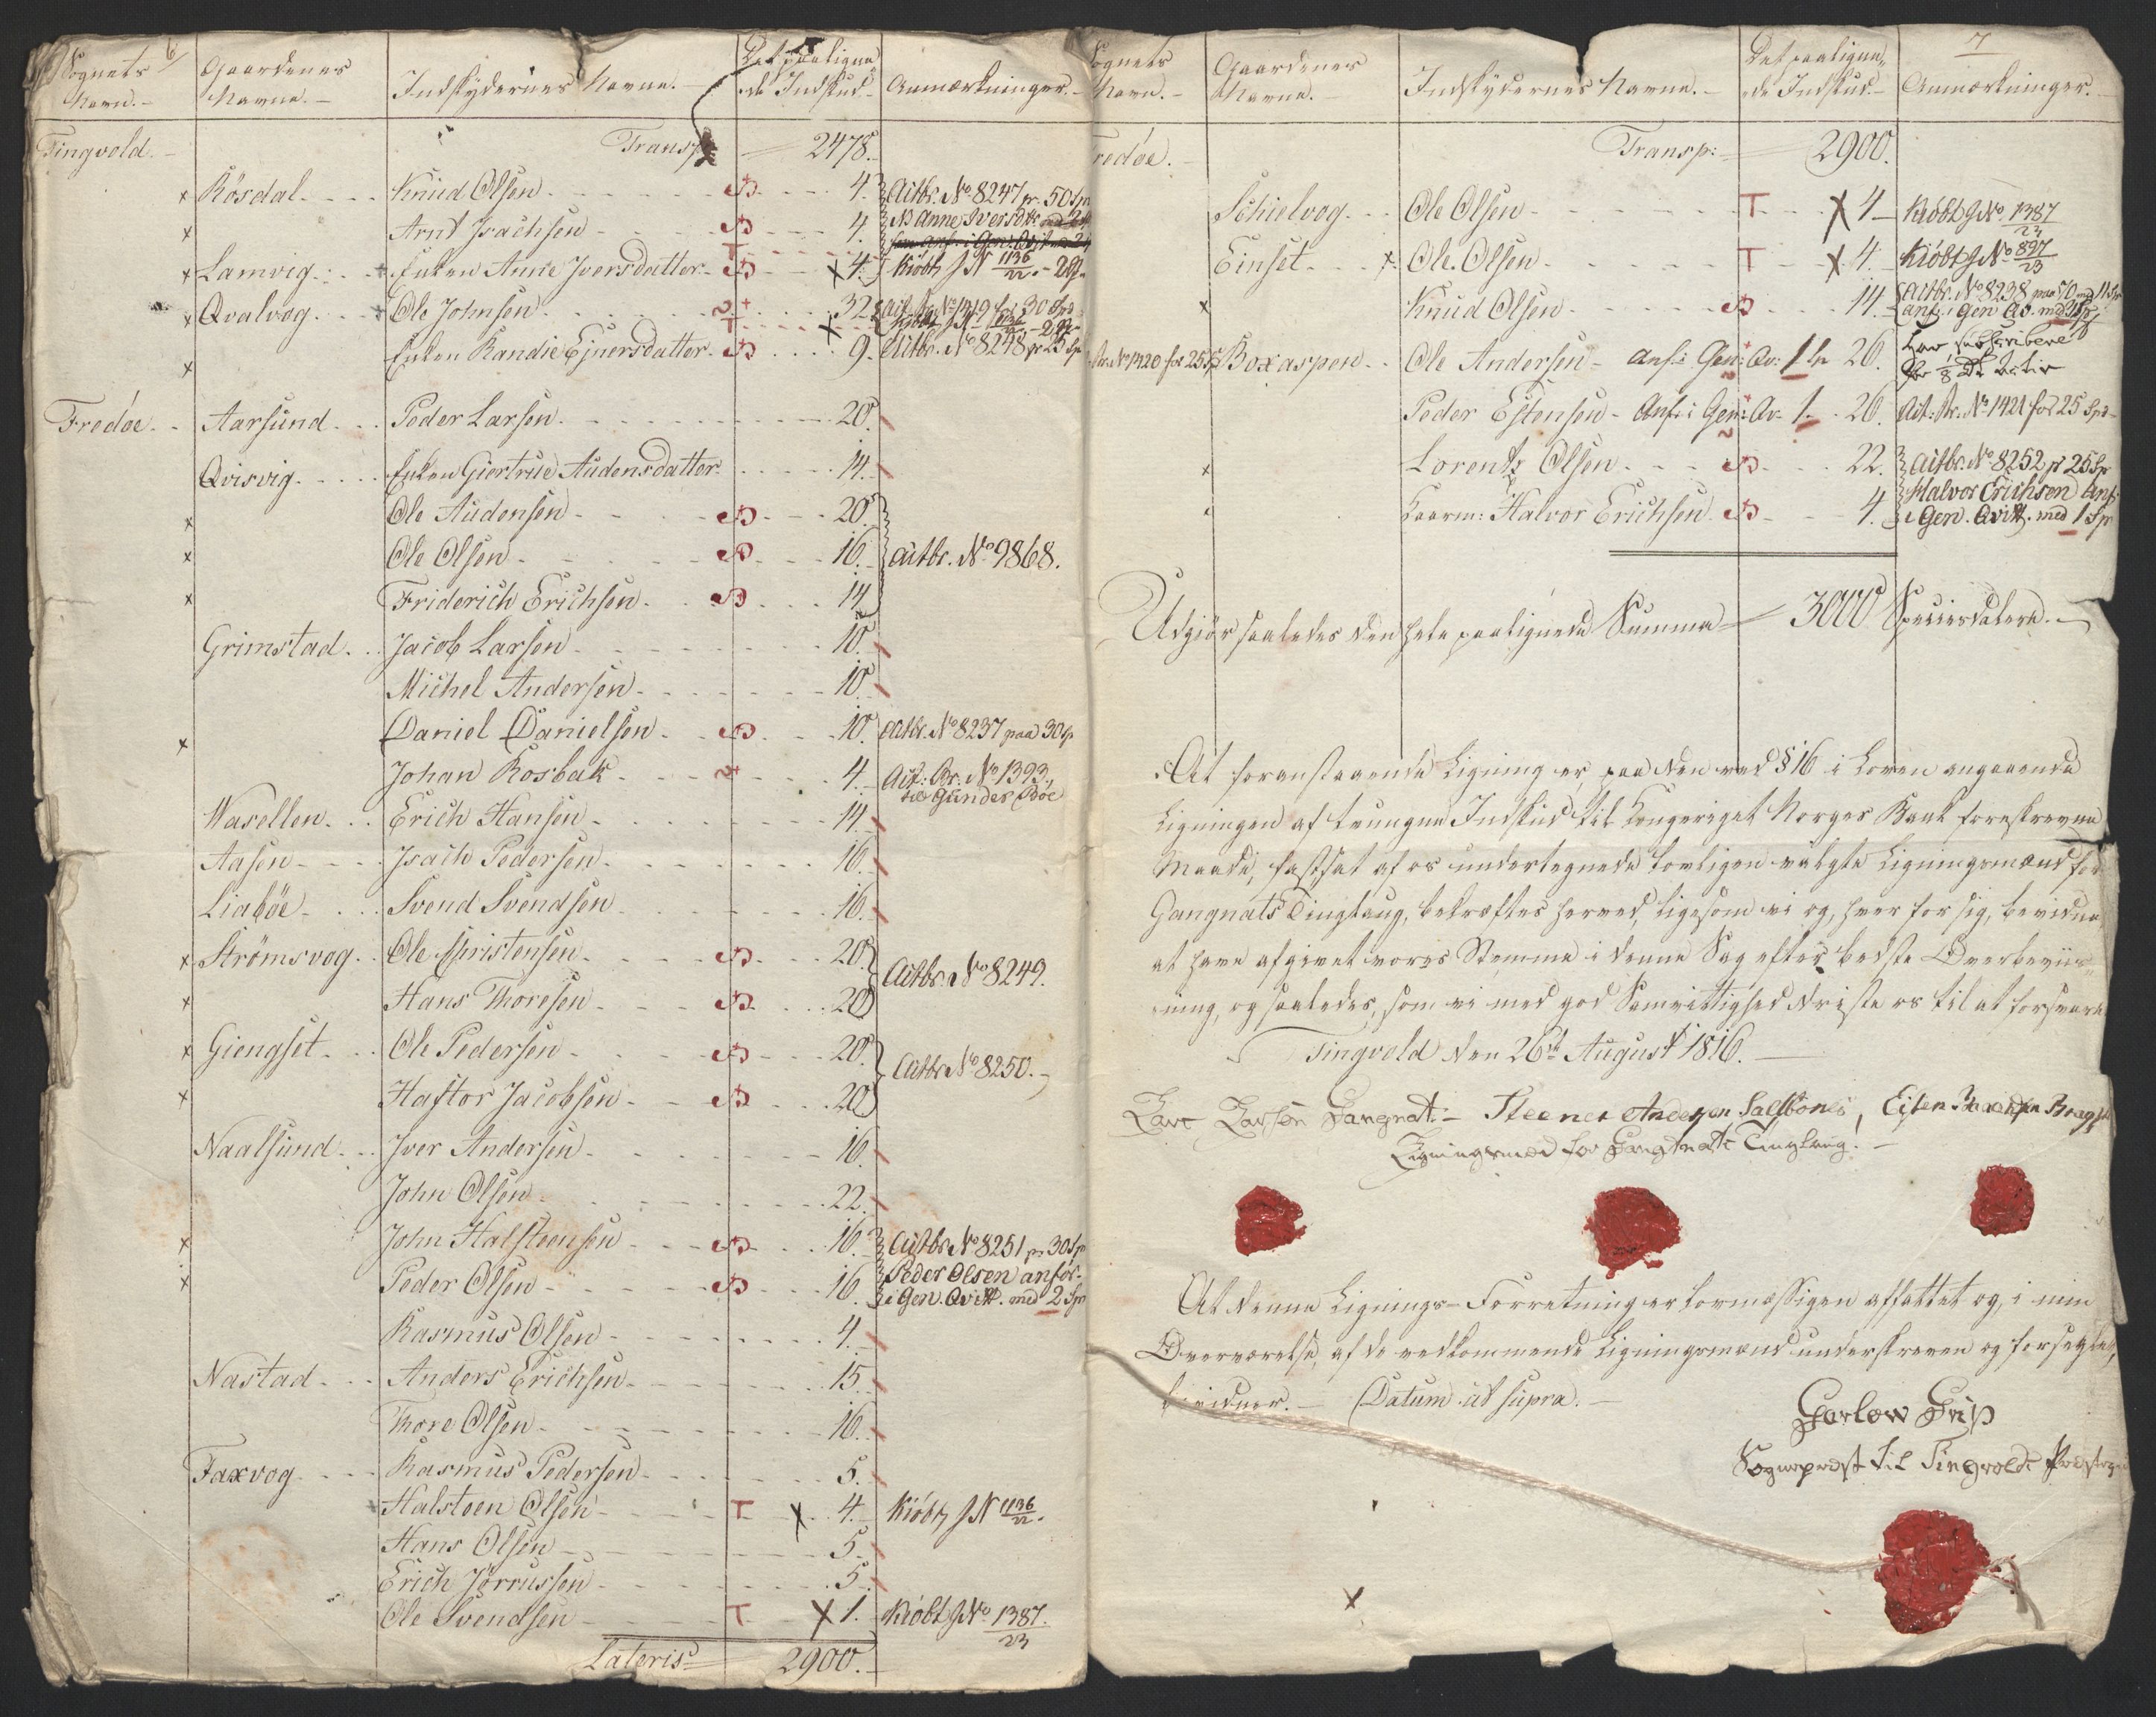 6
Sognets Navn.- Gaardenes Navne.- Indskydernes Navne.- Det paaligne- de Indskud.- Anmærkninger.-
Tingvold.- Transp: 2478.-
× Rösdal. Knud Olsen S 4. Actbr. No 8247 pr. 50 Sp
× Arnt Isachsen S 4. NB Anne Iversdtr
× Lamvig. Enken Anne Iversdatter T S × 4. Kiöbt J N 1136/22.
× Qvalvog. Ole Johnsen 32. Act. Br. No 1419 for 30 Spd
Kiöbt J N 1136/22
× Enken Randie Ejnersdatter T S × 9. Actbr. No 8248 pr 25 Sp
Fredøe. Aarsund. Peder Larsen 20.
Qvisvig. Enken Giertrue Audensdatter 14.
× Ole Audensen S 20.
× Ole Olsen S 16. Actbr. No 9868.
× Friderich Erichsen S 14.
Grimstad. Jacob Larsen 10.
Michel Andersen 10.
× Daniel Danielsen S 10. Actbr. No 8237 paa 30 sp
Johan Rosbak 4. Act: Br. No 1393.
til Gunder Böe
Wasellen. Erich Hansen 14.
Aasen. Isach Pedersen 16.
Liaböe. Svend Svendsen 16.
× Strömsvog. Ole Christensen S 20.
Actbr. No 8249.
× Hans Thoresen S 20.
× Giengset. Ole Pedersen S 20.
Actbr No 8250.-
× Haftor Jacobsen S 20.
Naalsund. Iver Andersen 16.
John Olsen 22.
× John Halsteensen S 16. Actbr. No 8251 pr 30 Sp
× Peder Olsen S 16. Peder Olsen anför.
i Gen. Qvitt. med 2 Sp
Rasmus Olsen 4.
Nastad. Anders Erichsen 15.
Thore Olsen 16.
Faxvog. Rasmus Pedersen 5.
Halsteen Olsen T × 4. Kiöbt J N 1136/22.
Hans Olsen 5.
Erich Jörrussen 5.
Ole Svendsen T × 1. Kiöbt J No 1387/23
Lateris 2900.-
7
Sognets Navn.- Gaardenes Navne.- Indskydernes Navne.- Det paaligne- de Indskud.- Anmærkninger.
Fredøe.- Transp: 2900.
Schielvog. Ole Olsen T × 4 Kiöbt J No 1387/23
Einset. × Ole Olsen T × 4. Kiöbt J No 897/23
× Knud Olsen S 14. Actbr. No 8238 paa 50 med 11 Sp
anf. i Gen Qv. med 3 Sp
Br. No 1420 for 25 Sp Boxaspen. Ole Andersen - anf: i Gen: Qv: 1 26. har subscriberet
for 1/8 Actie
Peder Estensen - Anf: i Gen: Qv. 1. 26. Act: Br. No 1421 for 25 Spd
× Lorentz Olsen S 22. Actbr. No 8252 pr 25 Sp
Kaarm: Halvor Erichsen S 4. Halvor Erichsen anf:
i Gen. Qvitt. med 1 Sp
Udgiör saaledes den hele paalignede Summa 3000 Speciesdalere.-
At foranstaaende Ligning er, paa den ved § 16 i Loven angaaende
Ligningen af tvungne Indskud til Kongeriget Norges Bank foreskrevne
Maade, fastsat af os undertegnede lovligen valgte Ligningsmænd for
Gangnats Tinglaug, bekræftes herved, ligesom vi og, hver for sig, bevidne
at have afgivet vores Stemme i denne Sag efter bedste Overbeviis-
ning, og saaledes, som vi med god Samvittighed driste os til at forsvare
Tingvold den 26de August 1816.-
Lars Larsen Gangnat.- Steener Andersen Salsbones, Esten
Ligningsmænd for Gangnats Tinglaug.-
At denne Lignings-Forretning er lovmæssigen affattet og, i min
Overværelse, af de vedkommende Ligningsmænd underskreven og forseglet,
bevidner.- Datum ut supra.-
Harlow Grip
Sognepræst til Tingvolds Præstegield